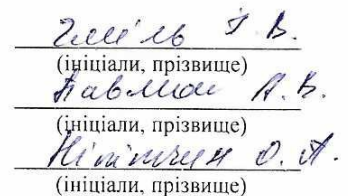 Чміль Г. В.
(ініціали, прізвище)
Павлюк А. В.
(ініціали, прізвище)
О. А.
(ініціали, прізвище)